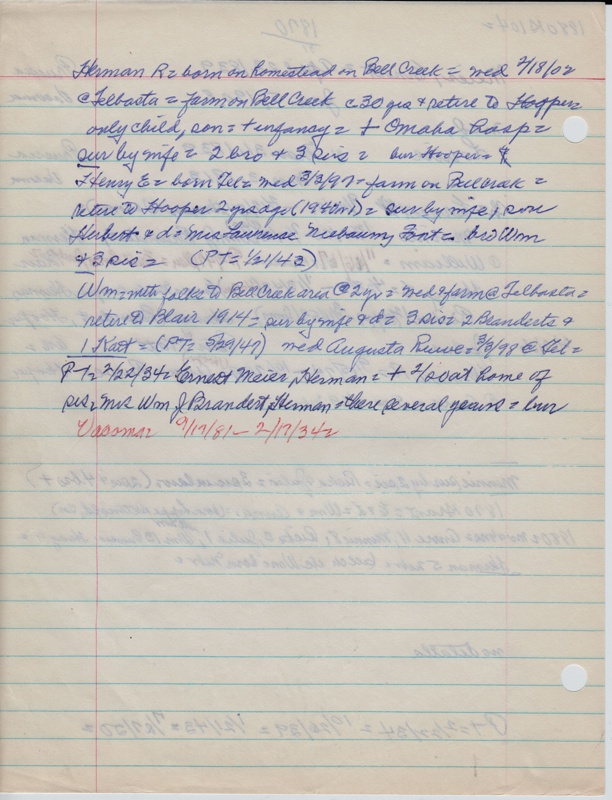 Herman R = born on homestead on Bell Creek = med 2/18/02
@ Telbasta = farm on Bell Creek c 30 yrs & retire to Hooper
only child, son = + infancy = + Omaha hosp =
sur by wife = 2 bro & 3 sis = bur Hooper =
Henry E = born Tel = med 3/3/97 = farm on Bell Crak =
retire to Hooper 2 yrs ago (1940/41) = sur by wife, son
Herbert & d = Mrs Lawrence Niebaum, Font = bro Wm
& 3 sis = (PT = 1/21/43)
Wm = with folks to Bell Creek area @ 2 yr = med & farm @ Telbasta =
retire to Blair 1914 = sur by wife & d = 3 sis = 2 Branderts &
1 Katt = (PT = 5/29/47) med Augusta = 3/3/98 @ Tel =
PT = 2/22/34 = Ernest Meier, Herman = + 2/20 at home of
sis = Mrs Wm J Brandert, Herman = there several years = bur
9/17/81 – 2/17/34 =